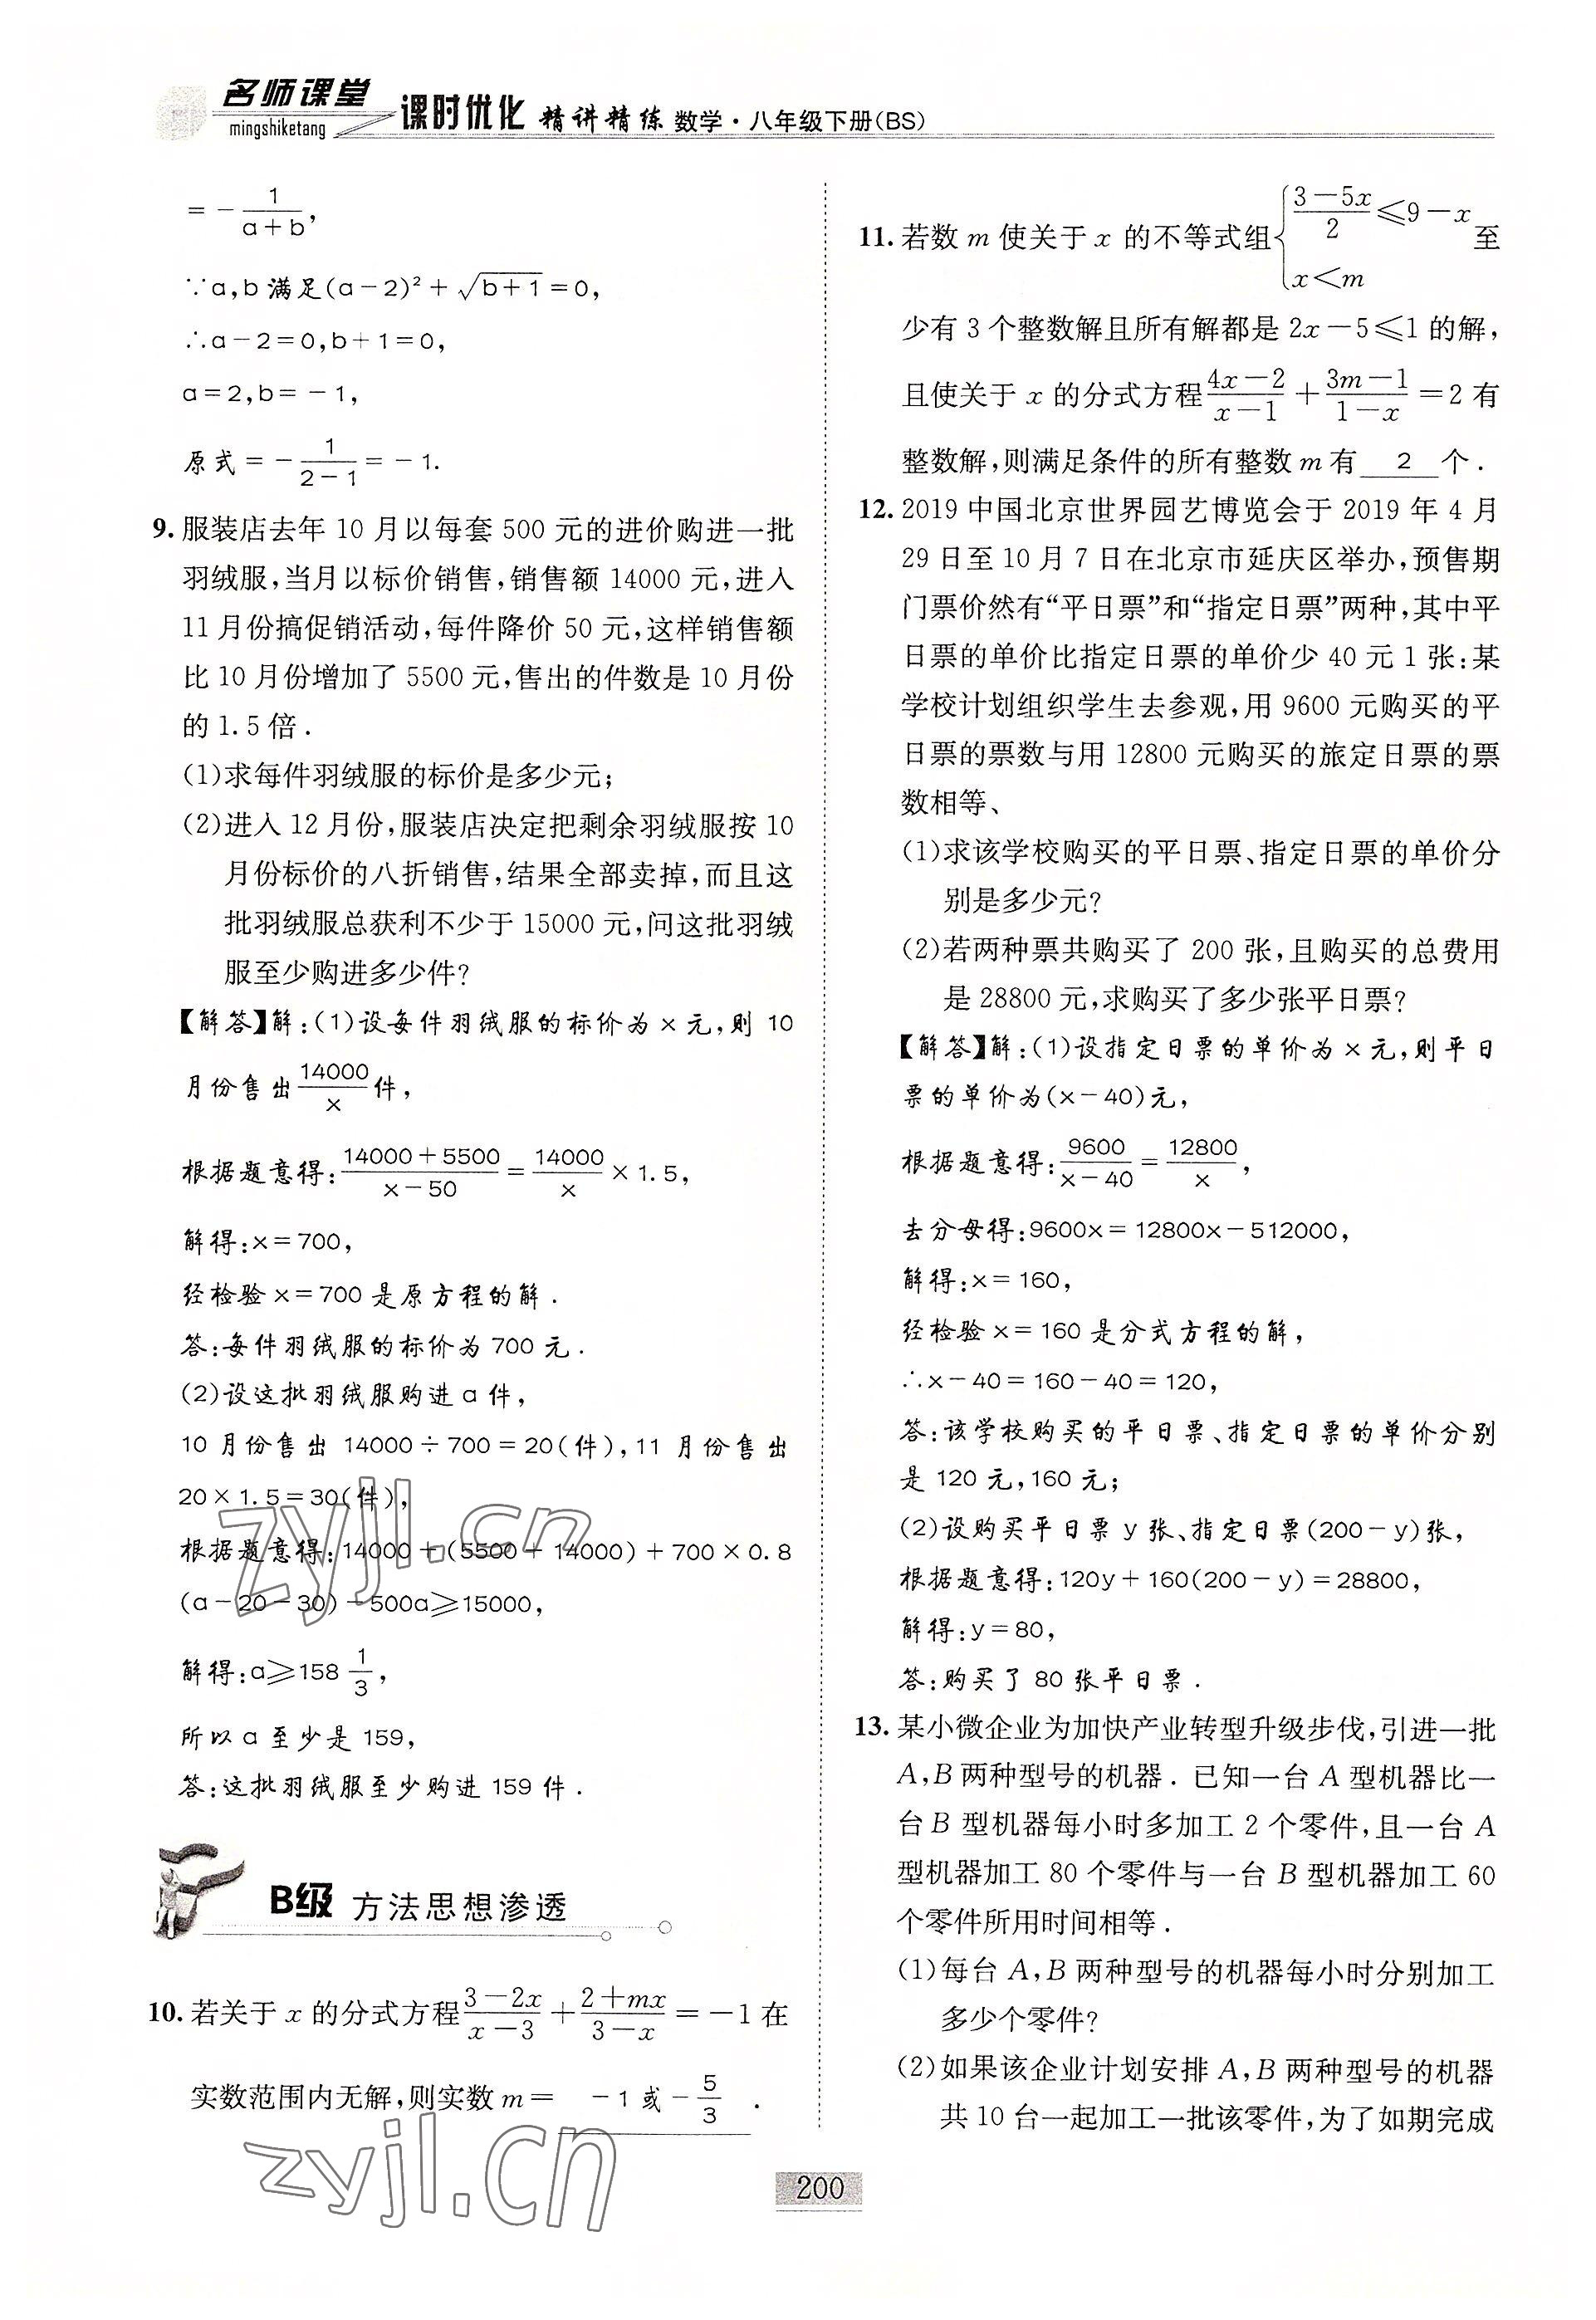 名师课堂
mingshiketang
课时优化 精讲精练 数学·八年级下册(BS)
=-1/(a+b),
∵a,b满足(a-2)²+√(b+1)=0,
∴a-2=0,b+1=0,
a=2,b=-1,
原式=-1/(2-1)=-1.
9. 服装店去年10月以每套500元的进价购进一批
羽绒服,当月以标价销售,销售额14000元,进入
11月份搞促销活动,每件降价50元,这样销售额
比10月份增加了5500元,售出的件数是10月份
的1.5倍.
(1)求每件羽绒服的标价是多少元;
(2)进入12月份,服装店决定把剩余羽绒服按10
月份标价的八折销售,结果全部卖掉,而且这
批羽绒服总获利不少于15000元,问这批羽绒
服至少购进多少件?
【解答】解:(1)设每件羽绒服的标价为x元,则10
月份售出14000/x件,
根据题意得:(14000+5500)/(x-50)=14000/x×1.5,
解得:x=700,
经检验x=700是原方程的解.
答:每件羽绒服的标价为700元.
(2)设这批羽绒服购进a件,
10月份售出14000÷700=20(件),11月份售出
20×1.5=30(件),
根据题意得:14000+(5500+14000)+700×0.8
(a-20-30)-500a≥15000,
解得:a≥158 1/3,
所以a至少是159,
答:这批羽绒服至少购进159件.
B级 方法思想渗透
10. 若关于x的分式方程(3-2x)/(x-3)+(2+mx)/(3-x)=-1在
实数范围内无解,则实数m= -1或-5/3 .
11. 若数m使关于x的不等式组{(3-5x)/2≤9-x
x<m 至
少有3个整数解且所有解都是2x-5≤1的解,
且使关于x的分式方程(4x-2)/(x-1)+(3m-1)/(1-x)=2有
整数解,则满足条件的所有整数m有 2 个.
12. 2019中国北京世界园艺博览会于2019年4月
29日至10月7日在北京市延庆区举办,预售期
门票价然有“平日票”和“指定日票”两种,其中平
日票的单价比指定日票的单价少40元1张:某
学校计划组织学生去参观,用9600元购买的平
日票的票数与用12800元购买的旅定日票的票
数相等、
(1)求该学校购买的平日票、指定日票的单价分
别是多少元?
(2)若两种票共购买了200张,且购买的总费用
是28800元,求购买了多少张平日票?
【解答】解:(1)设指定日票的单价为x元,则平日
票的单价为(x-40)元,
根据题意得:9600/(x-40)=12800/x,
去分母得:9600x=12800x-512000,
解得:x=160,
经检验x=160是分式方程的解,
∴x-40=160-40=120,
答:该学校购买的平日票、指定日票的单价分别
是120元,160元;
(2)设购买平日票y张、指定日票(200-y)张,
根据题意得:120y+160(200-y)=28800,
解得:y=80,
答:购买了80张平日票.
13. 某小微企业为加快产业转型升级步伐,引进一批
A,B两种型号的机器.已知一台A型机器比一
台B型机器每小时多加工2个零件,且一台A
型机器加工80个零件与一台B型机器加工60
个零件所用时间相等.
(1)每台A,B两种型号的机器每小时分别加工
多少个零件?
(2)如果该企业计划安排A,B两种型号的机器
共10台一起加工一批该零件,为了如期完成
200
zyjl.cn
zyjl.cn